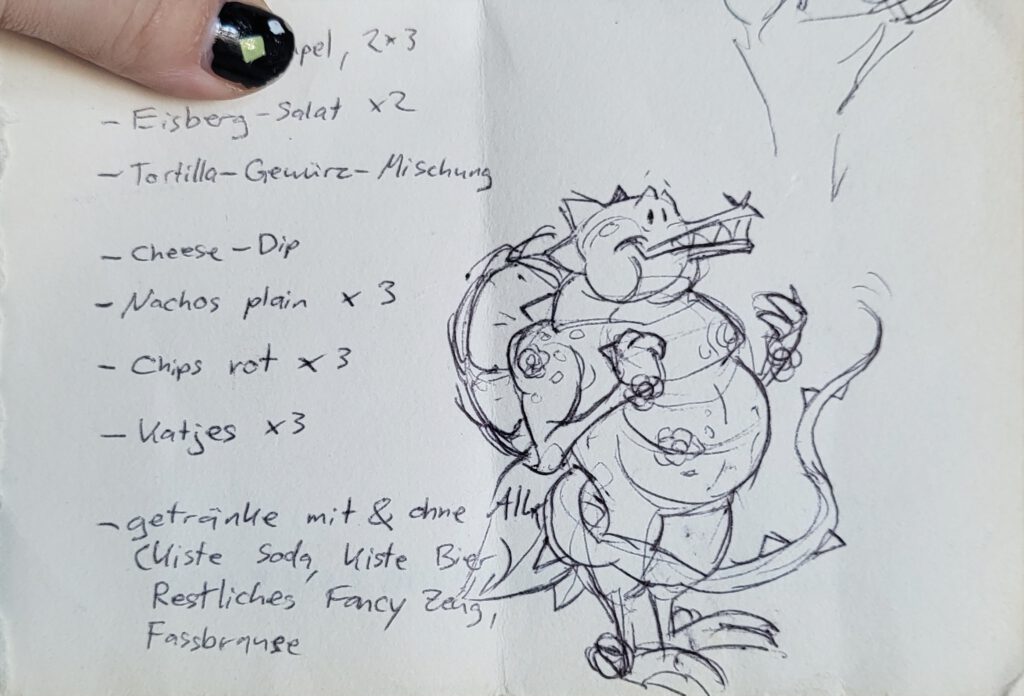 2x3
- Eisberg-Salat x2
- Tortilla-Gewürz-Mischung
- Cheese-Dip
- Nachos plain x 3
- Chips rot x 3
- Katjes x3
- getränke mit & ohne Alk
(Kiste Soda, Kiste Bier)
Restliches Fancy Zeug,
Fassbrause